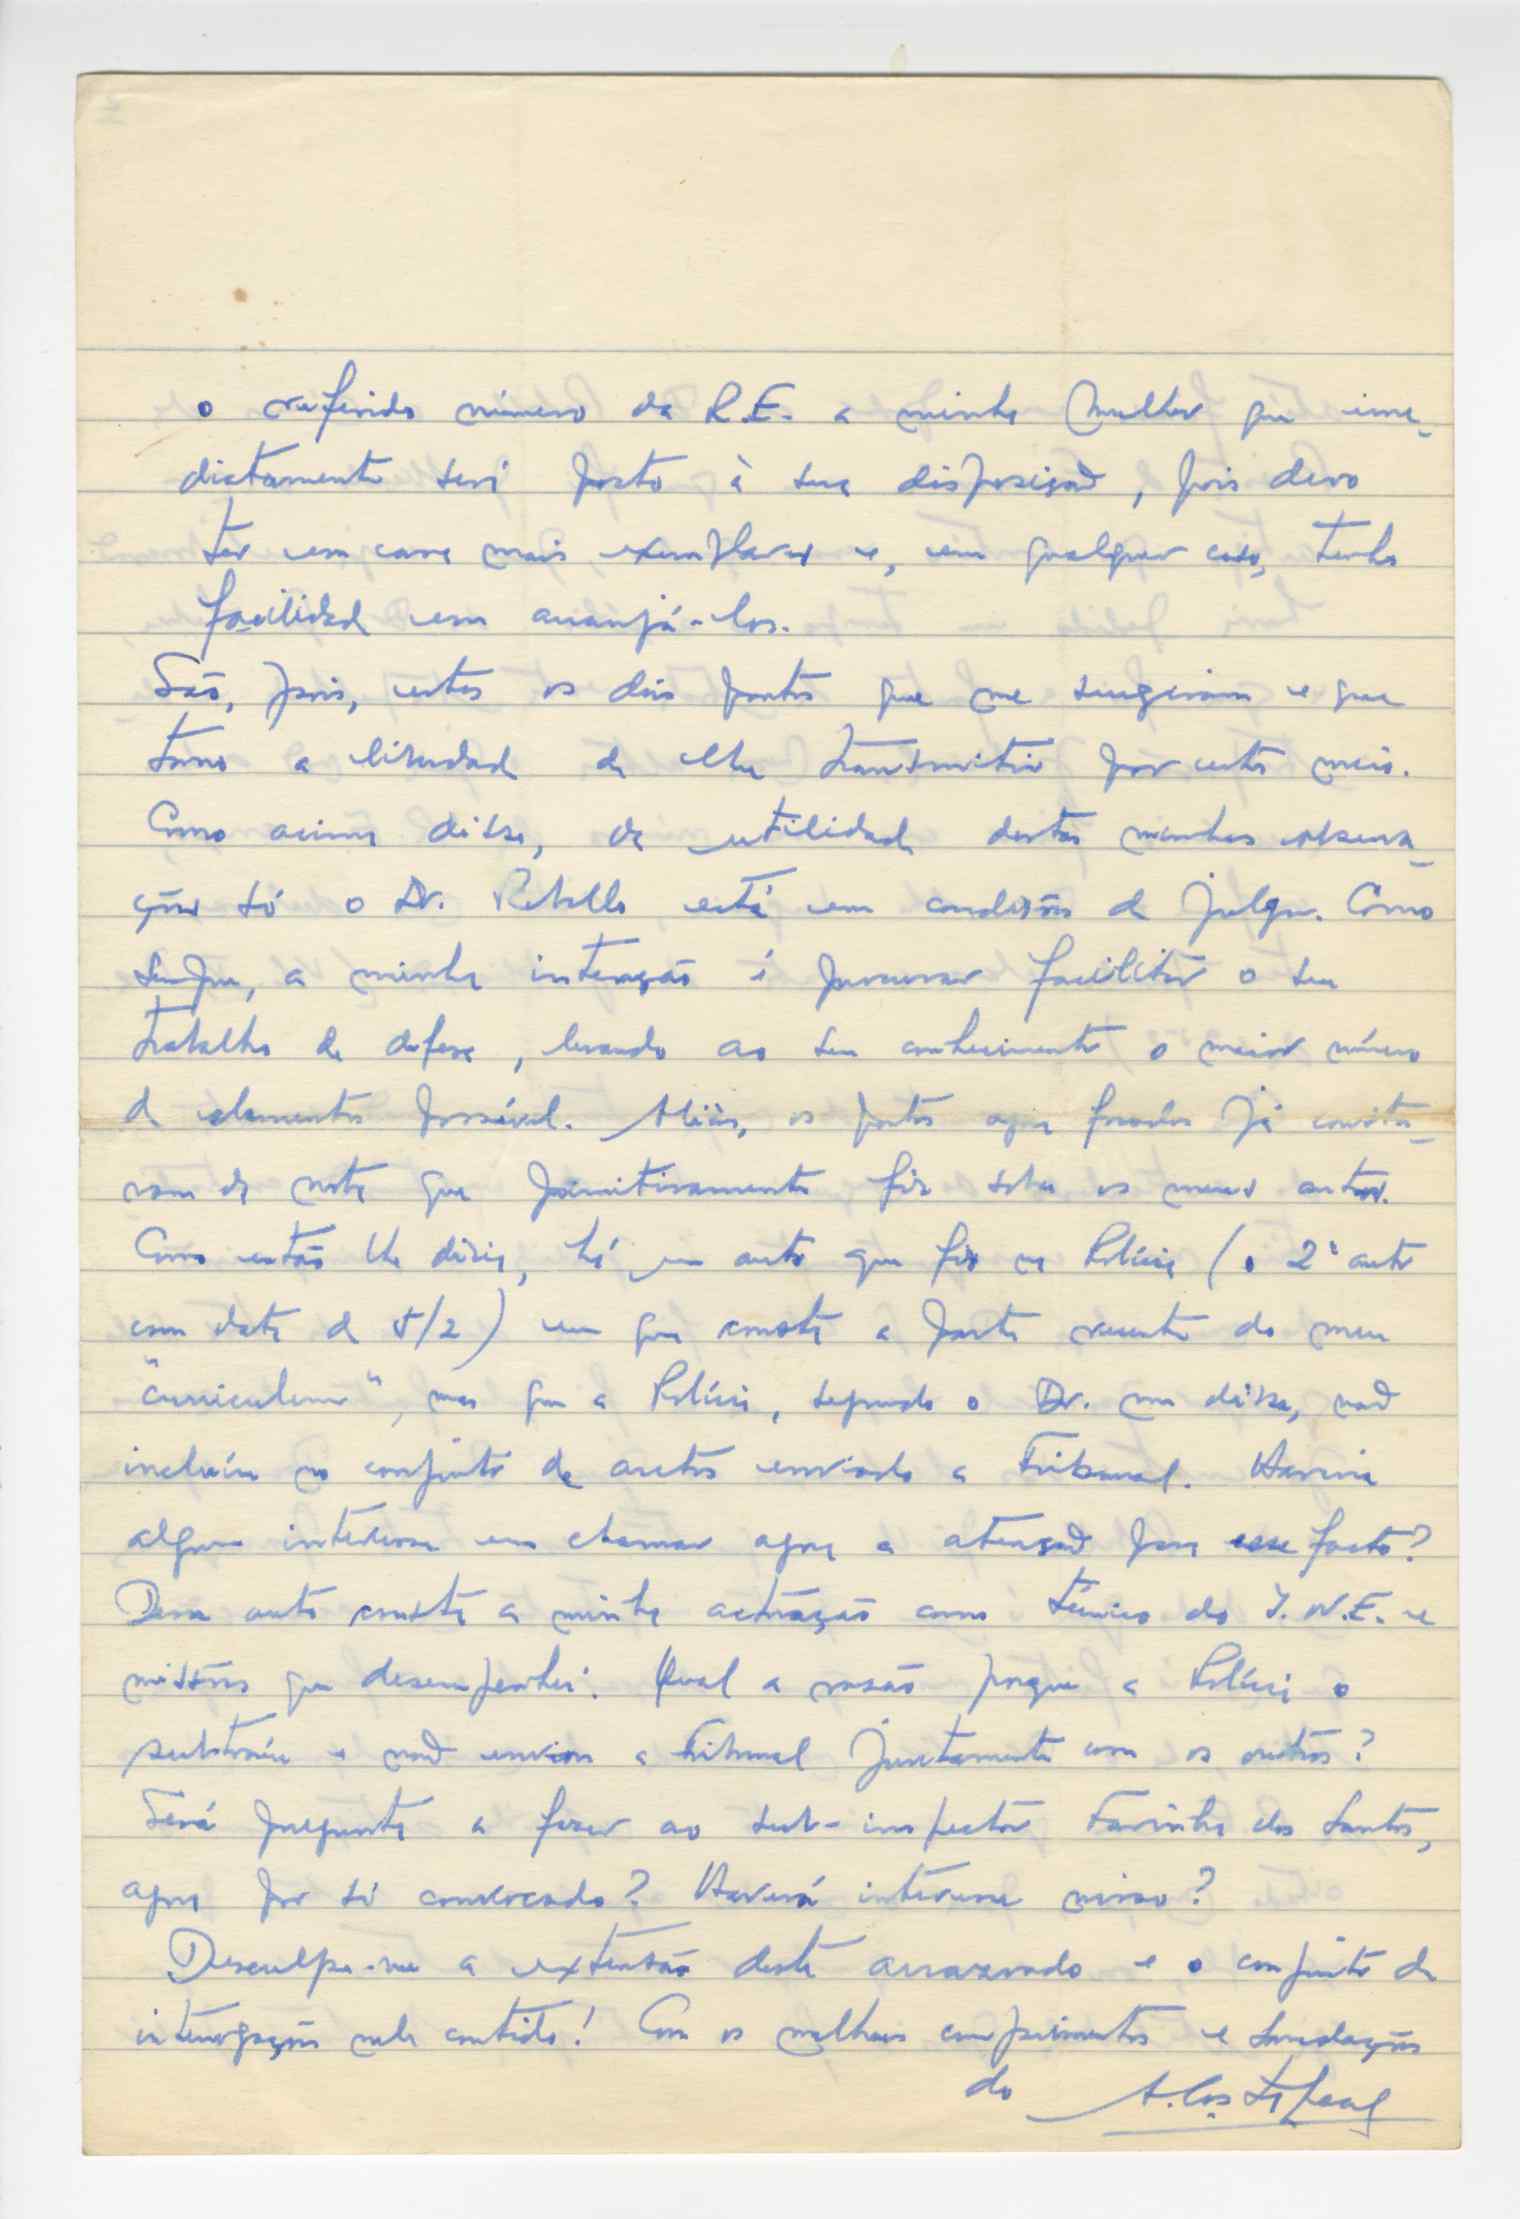 o referido número da R.E. a minha Mulher que ime-
diatamente será posto à sua disposição, pois devo
ter em casa mais exemplares e, em qualquer caso, tenho
facilidade em arranjá-los.
São, pois, estes os dois pontos que me sugeriram e que
tomo a liberdade de lhe transmitir por este meio.
Como acima disse, da utilidade destas minhas observa-
ções só o Dr. Rebello está em condições de julgar. Como
sempre, a minha intenção é procurar facilitar o seu
trabalho de defesa, levando ao seu conhecimento o maior número
de elementos possível. Aliás, os pontos agora focados já consta-
vam da nota que primitivamente fiz sobre os meus autos.
Como então lhe dizia, há um auto que fiz na Polícia (o 2º auto
com data de 5/2) em que consta a parte recente do meu
"curriculum", mas que a Polícia, segundo o Dr. me disse, não
incluíu no conjunto de autos enviado a Tribunal. Haveria
algum interesse em chamar agora a atenção para esse facto?
Desse auto consta a minha actuação como técnico do I.N.E. e
missões que desempenhei. Qual a razão porque a Polícia o
subtraíu e não enviou a Tribunal juntamente com os outros?
Será pregunta a fazer ao sub-inspector Farinha dos Santos,
agora por si convocado? Haverá interesse nisso?
Desculpe-me a extensão deste arrazoado e o conjunto de
interrogações nele contido! Com os melhores comprimentos e saudações
do A. Costa Leal